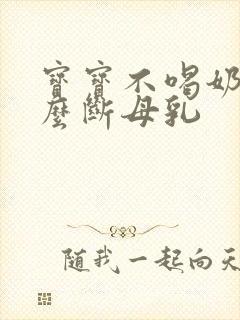 寶寶不喝奶
麼斷母乳
隨我一起向天